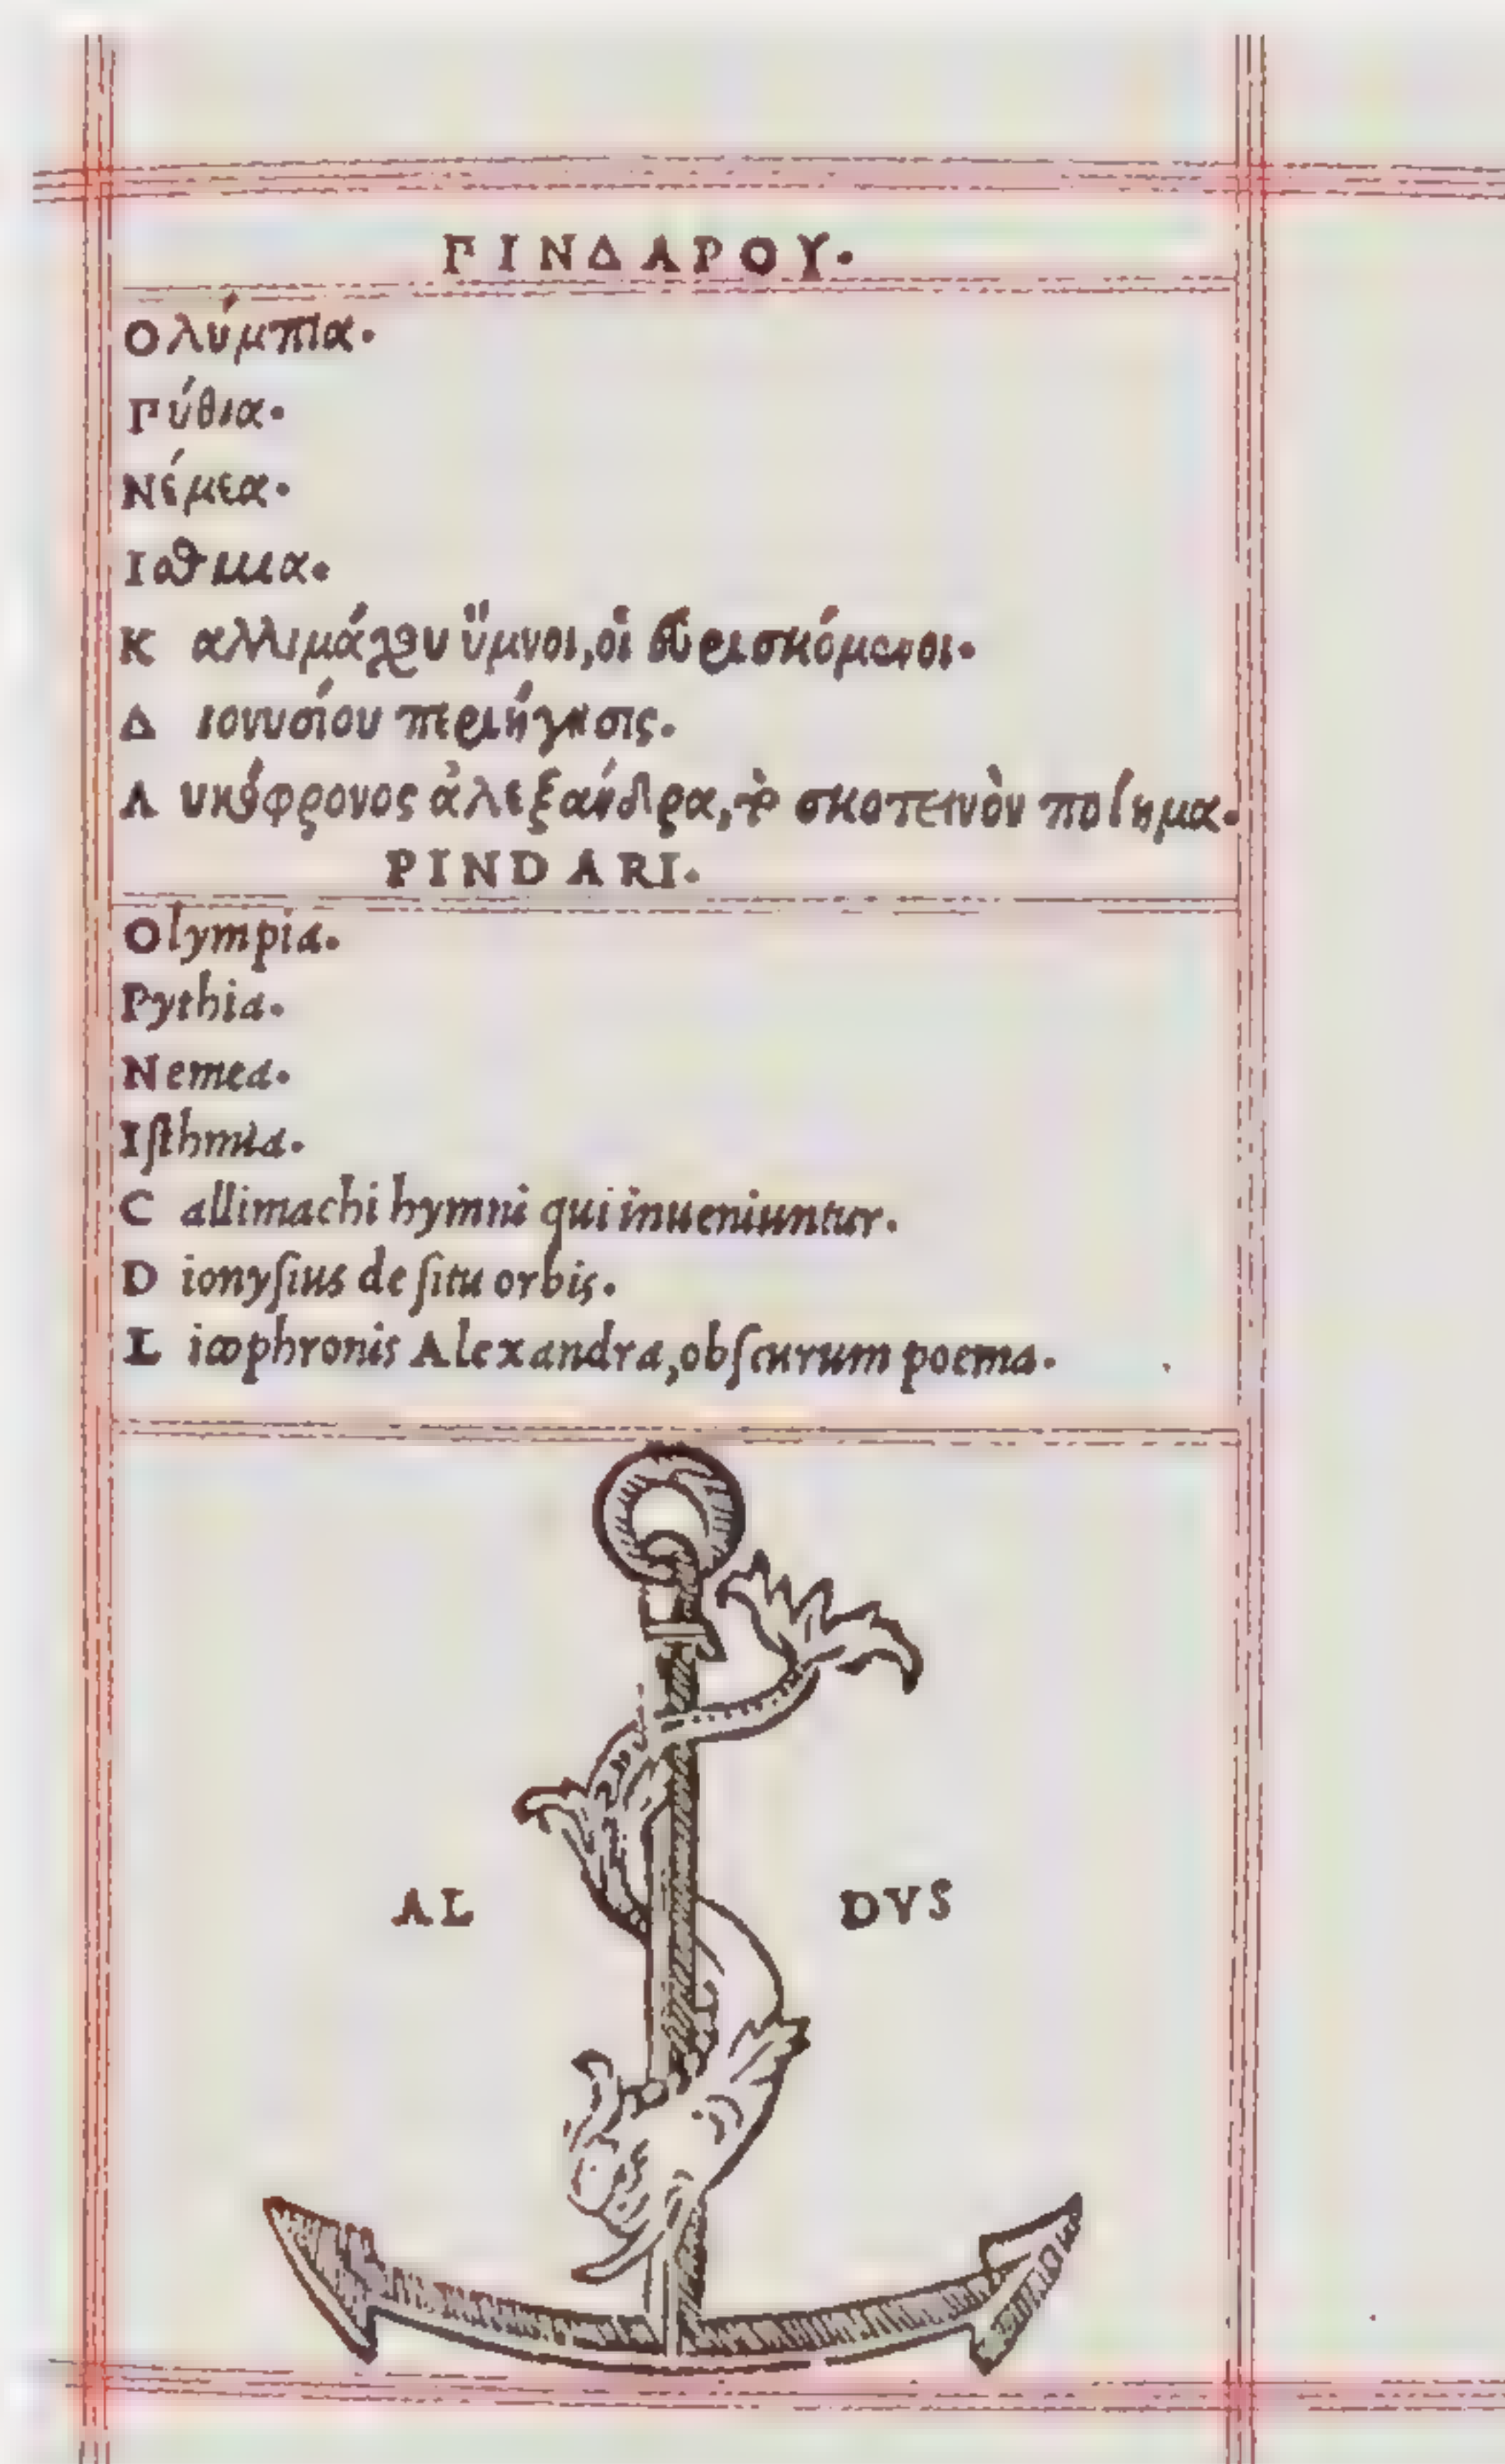 ΠΙΝΔΑΡΟΥ.
Ολύμπια.
Πύθια.
Νέμεα.
Ισθμια.
Καλλιμάχου ὕμνοι, οἱ εὑρισκόμενοι.
Διονυσίου περιήγησις.
Λυκόφρονος ἀλεξάνδρα, τὸ σκοτεινὸν ποίημα.
PINDARI.
Olympia.
Pythia.
Nemea.
Iſthmia.
Callimachi hymni qui inueniuntur.
Dionyſius de ſitu orbis.
Licophronis Alexandra, obſcurum poema.
AL DVS